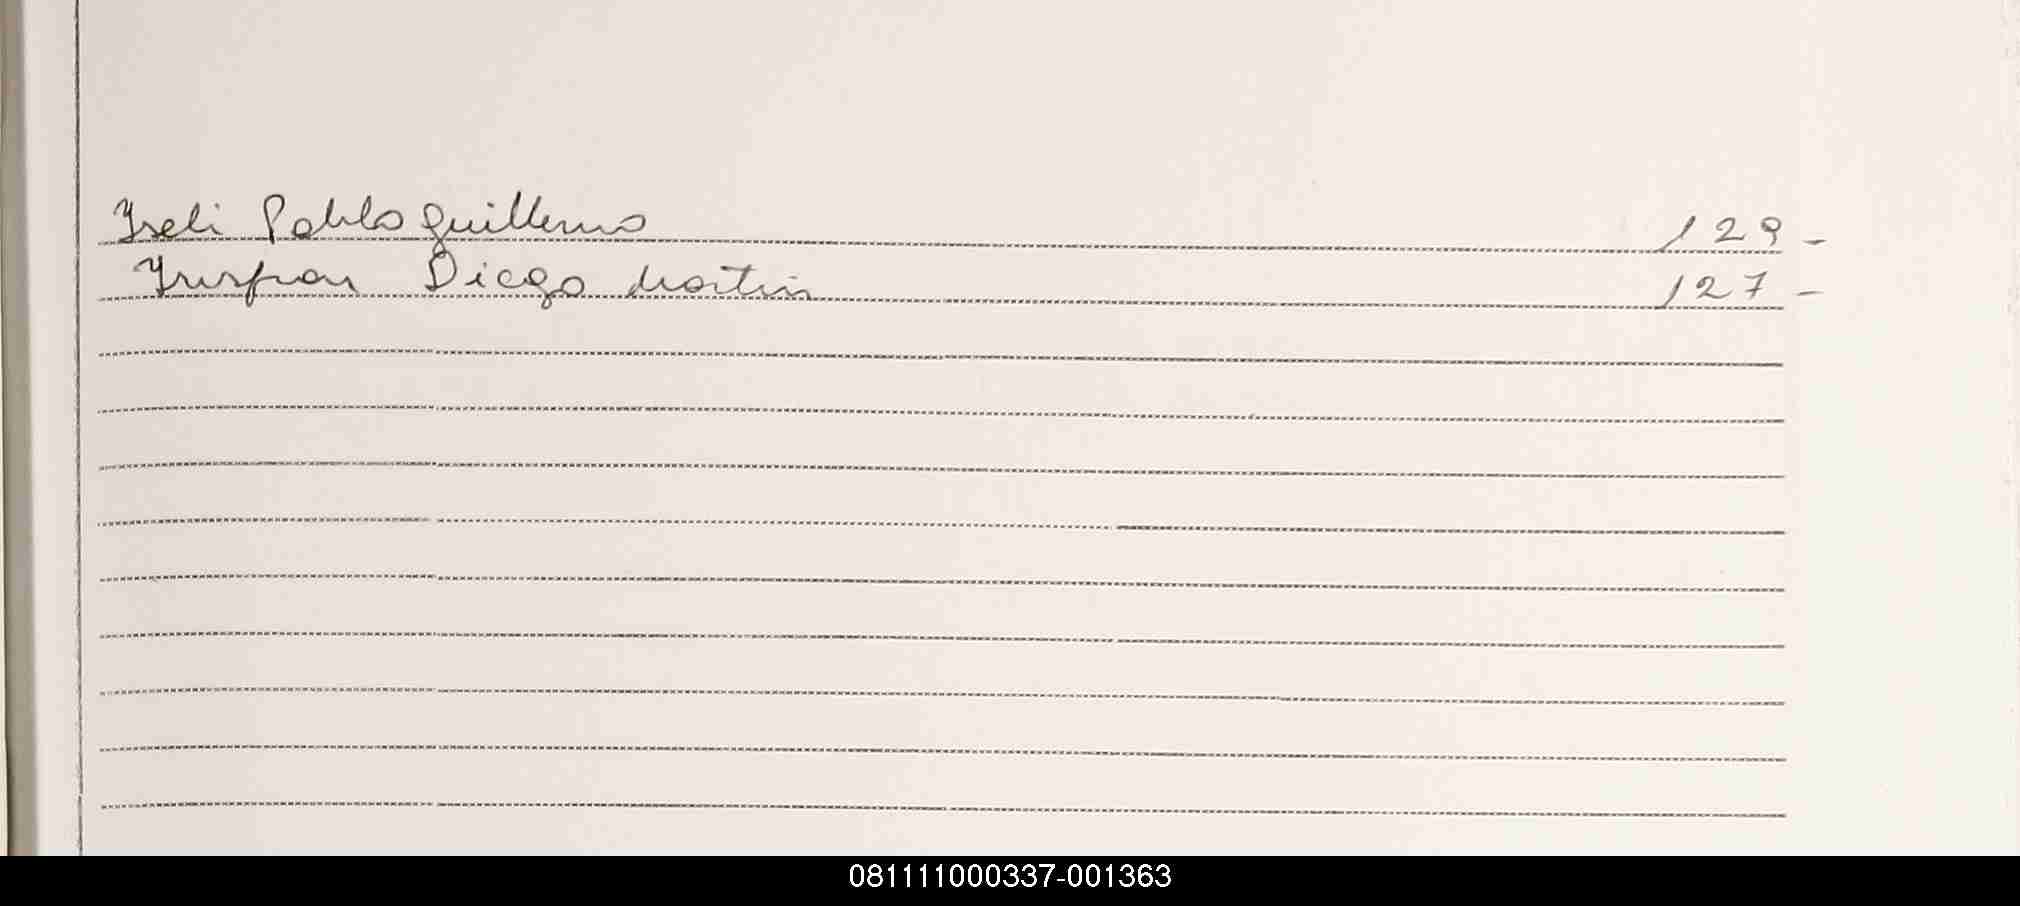 Iseli Pablo Guillermo 129 -
Diego Martin 127 -
081111000337-001363